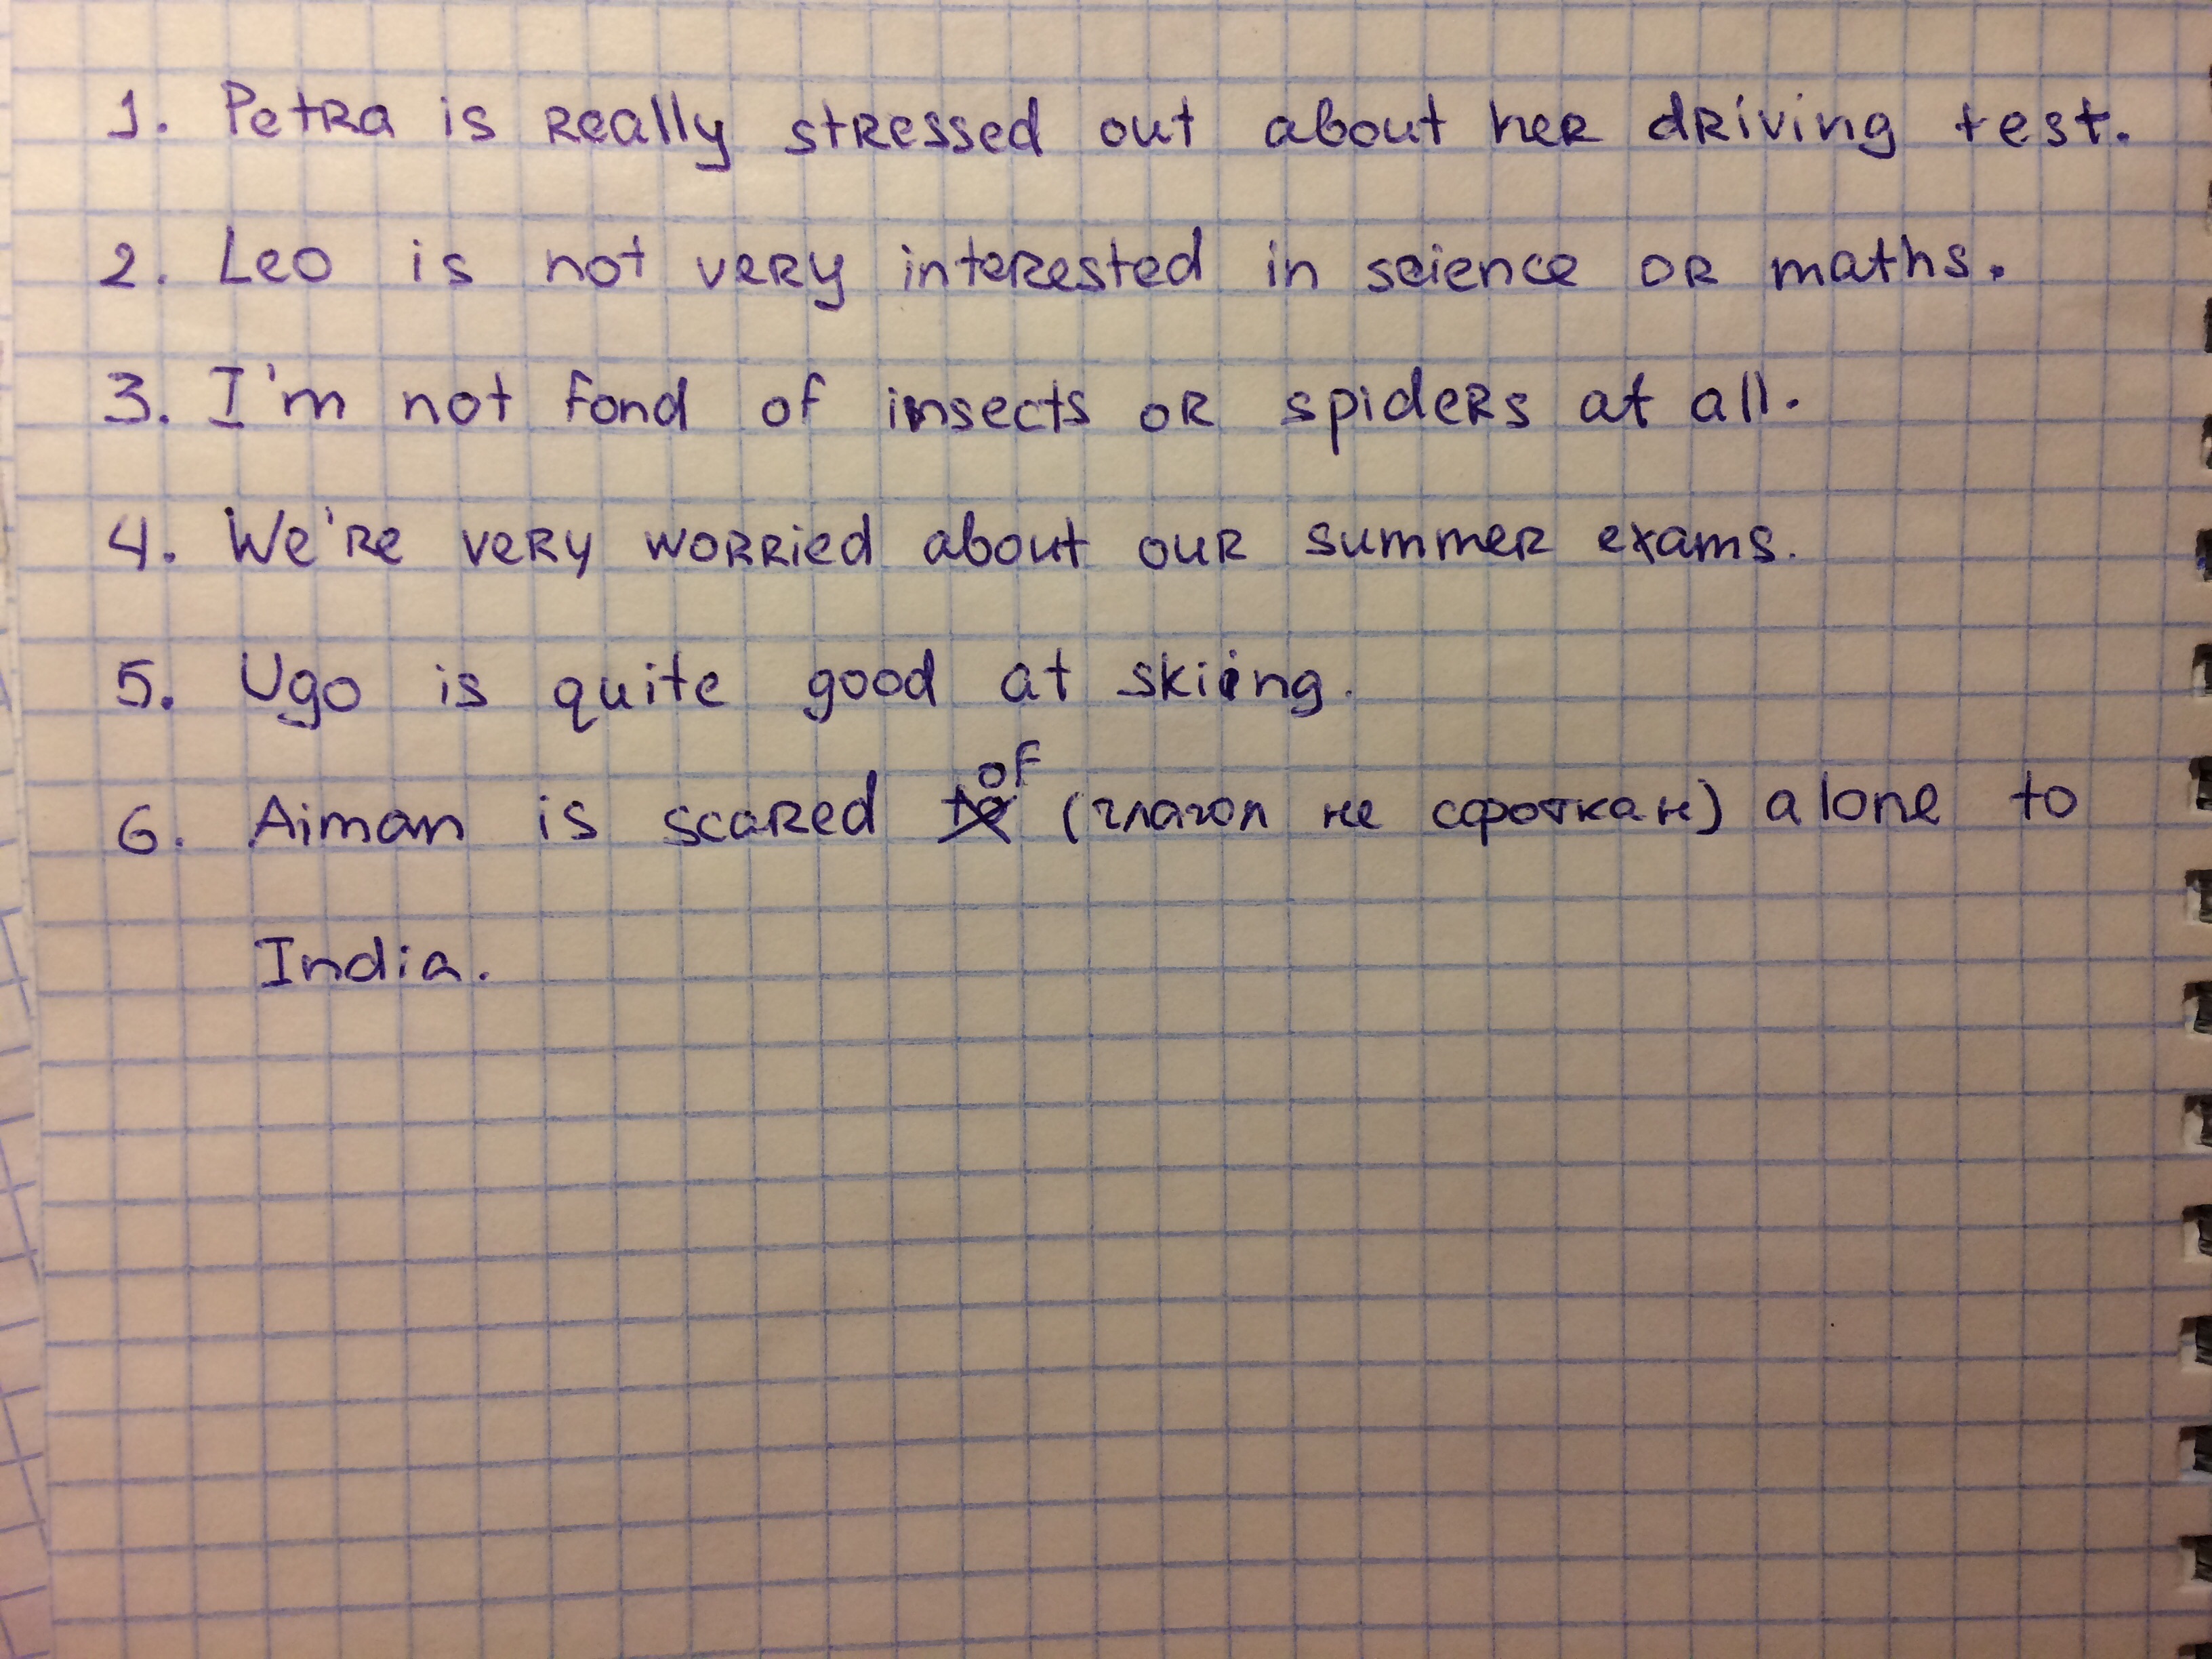 1. Petra is really stressed out about her driving test.
2. Leo is not very interested in science or maths.
3. I'm not fond of insects or spiders at all.
4. We're very worried about our summer exams.
5. Ugo is quite good at skiing.
6. Aiman is scared of (глагол не сфоткан) alone to
India.